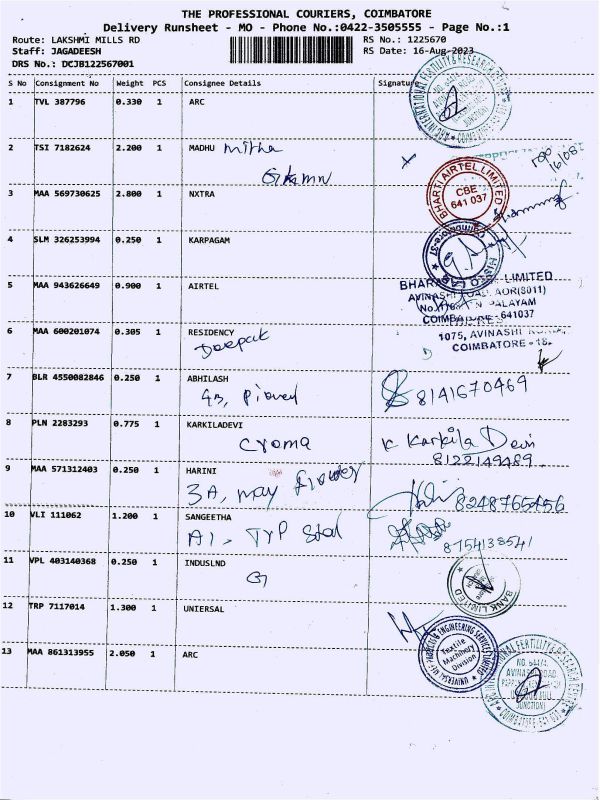 THE PROFESSIONAL COURIERS, COIMBATORE
Delivery Runsheet - MO - Phone No.:0422-3505555 - Page No.:1
Route: LAKSHMI MILLS RD
RS No.: 1225670
Staff: JAGADEESH
RS Date: 16-Aug-2023
DRS No.: DCJB122567001
S No Consignment No Weight PCS Consignee Details Signature
1 TVL 387796 0.330 1 ARC
2 TSI 7182624 2.200 1 MADHU
3 MAA 569730625 2.800 1 NXTRA
BHARTI AIRTEL LIMITED
CBE
641 037
4 SLM 326253994 0.250 1 KARPAGAM
5 MAA 943626649 0.900 1 AIRTEL
LIMITED
COIMBATORE - 641037
6 MAA 600201074 0.305 1 RESIDENCY
Deepak
1075, AVINASHI
COIMBATORE - 18.
7 BLR 4550082846 0.250 1 ABHILASH
8141670469
8 PLN 2283293 0.775 1 KARKILADEVI
croma
K Karkila Devi
8122149489
9 MAA 571312403 0.250 1 HARINI
3A, may flower
8248765456
10 VLI 111062 1.200 1 SANGEETHA
A1, TVP
8754138541
11 VPL 403140368 0.250 1 INDUSLND
BANK LIMITED
12 TRP 7117014 1.300 1 UNIERSAL
Textile
Machinery
Division
13 MAA 861313955 2.050 1 ARC